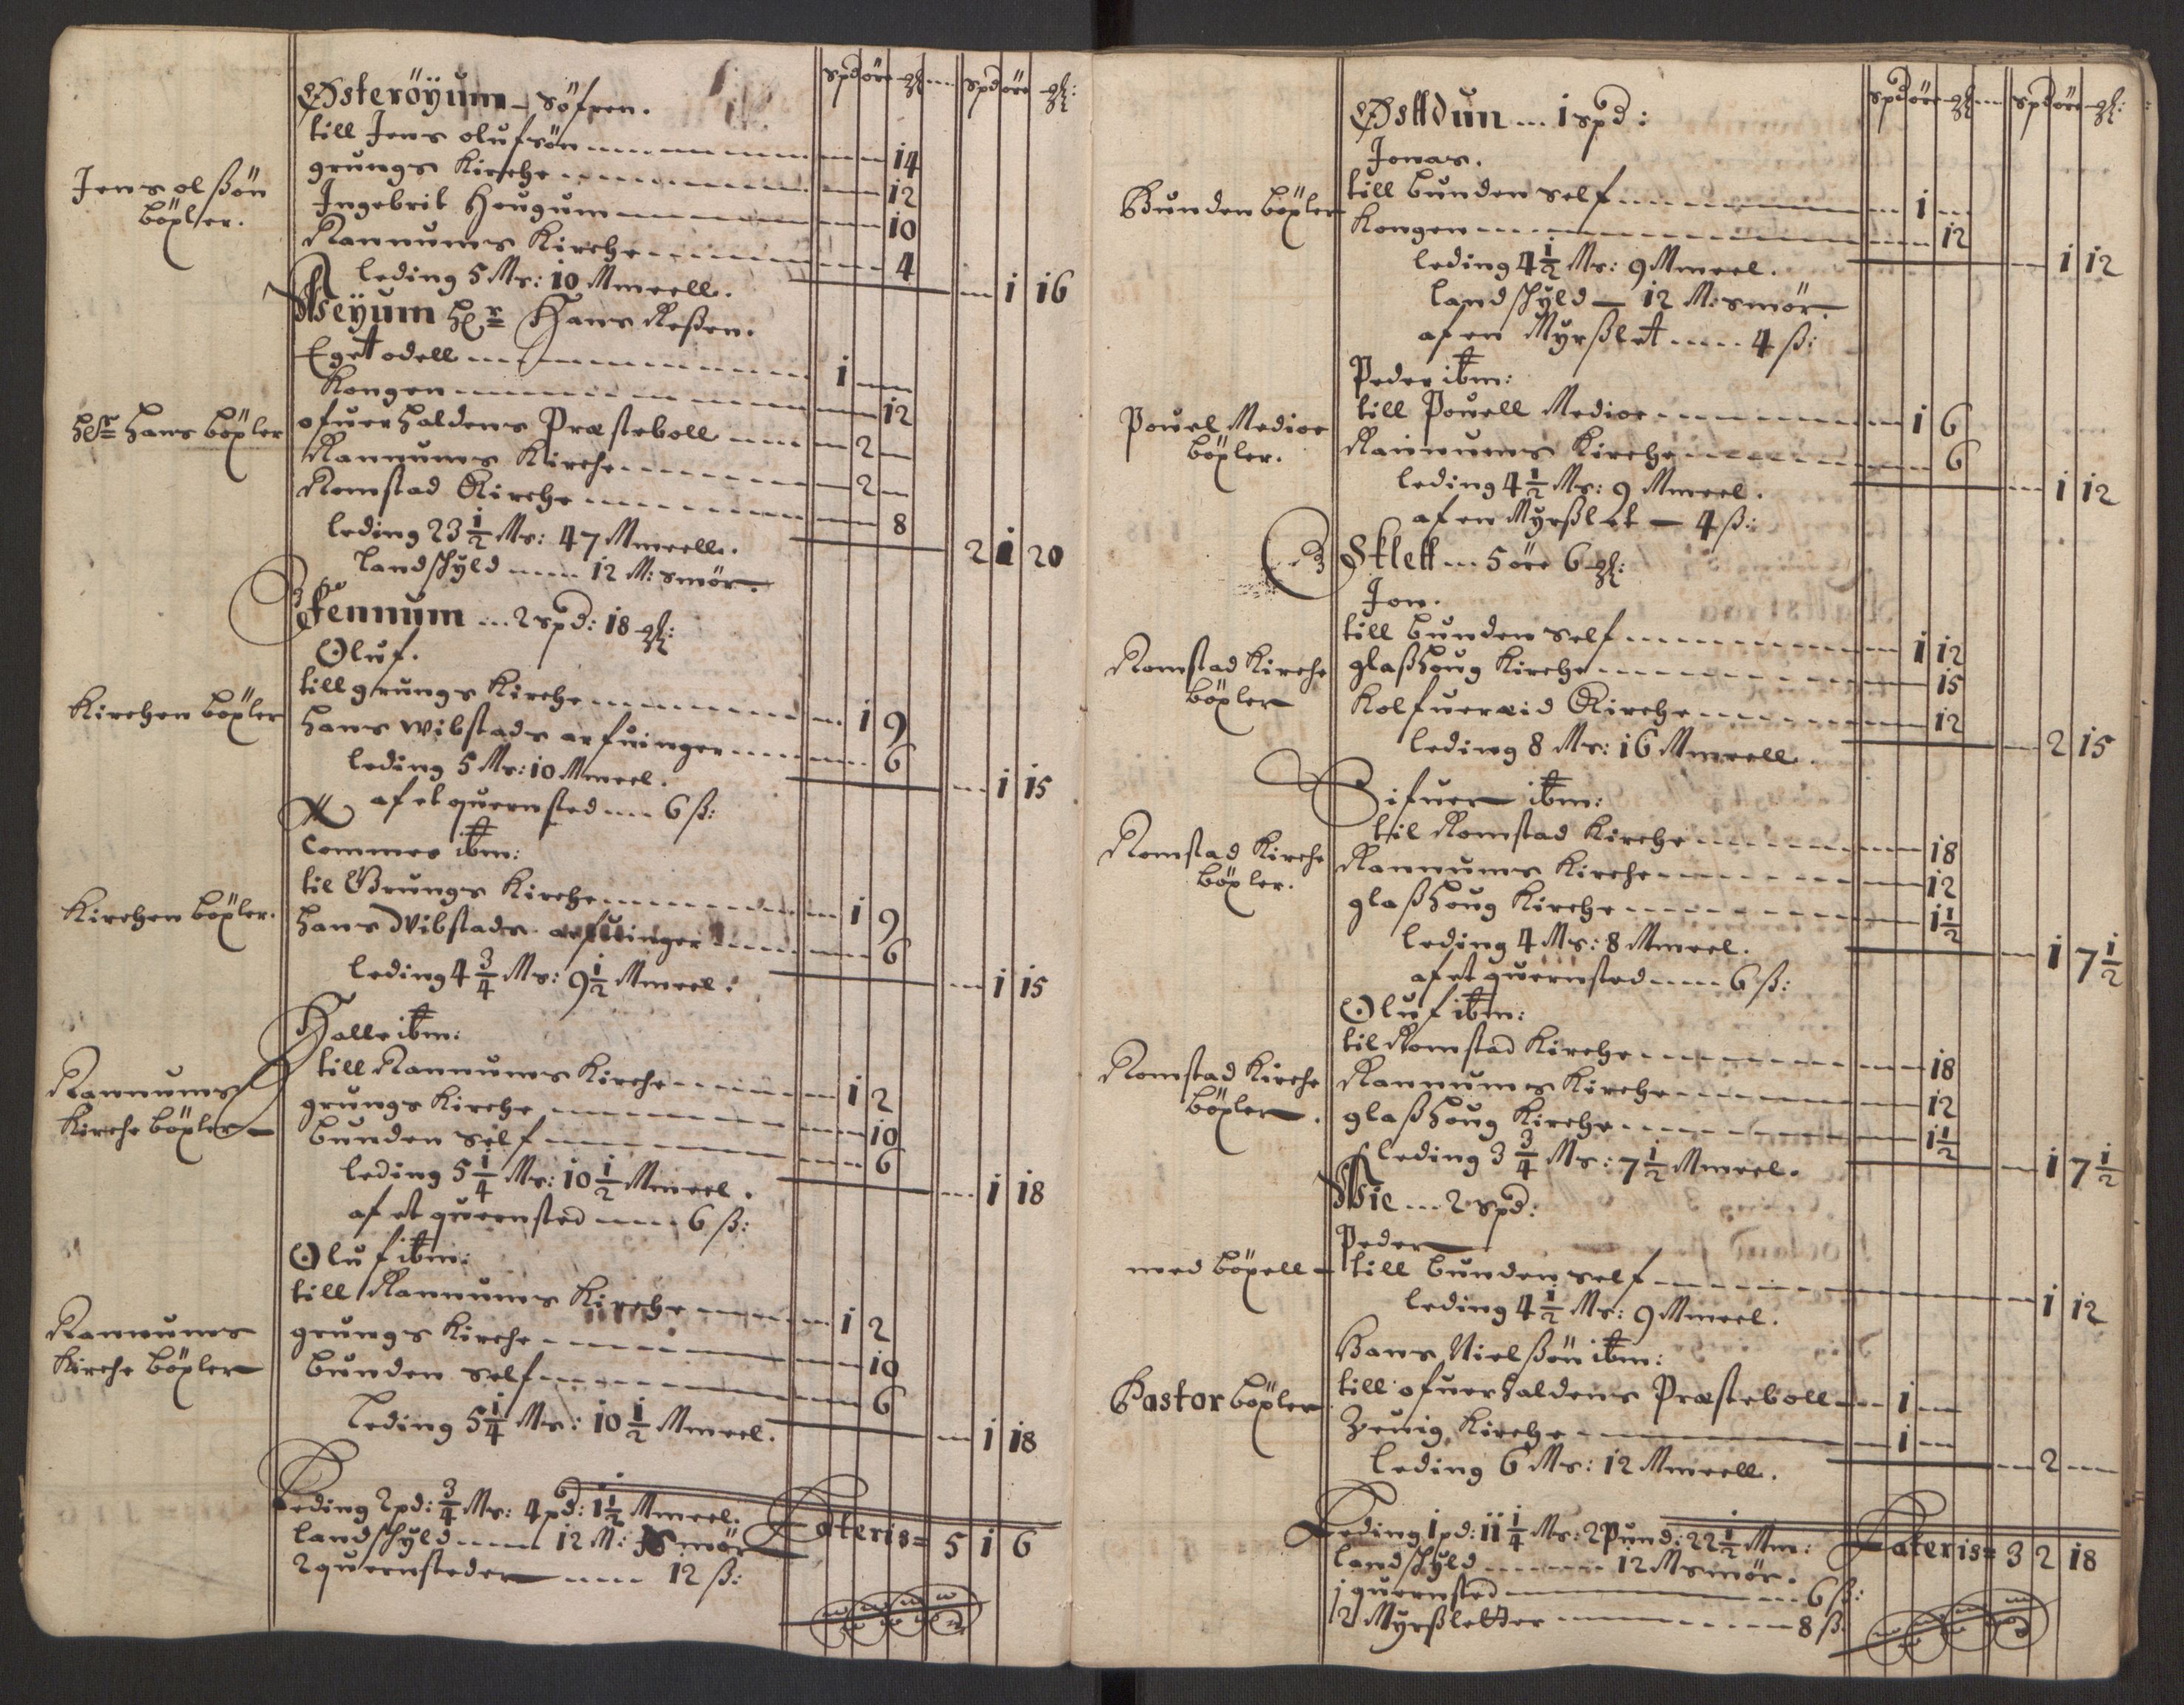 spd öre gl: spd öre gl:
Østeröyum Söfren.
till Jens olufsön 14
Jens olßön böxler.
grungs Kirche 12
Ingebrit Haugum 10
Rannums Kirche 4
leding 5 Mr: 10 Mmeell. 1 16
Weyum Hr Hans Roßen.
Eget odell 1
Kongen 12
Hr Hans böxler
ofuerhaldens Præsteboll 2
Rannums Kirche 2
Romstad Kirche 8
leding 23 1/2 Mr: 47 Mmeell. 2 1 20
landschyld 12 M: smör.
Fennum 2 spd: 18 gl:
Oluf.
Kirchen böxler
till grungs Kirche 1 9
Hans Wibstads arfuinger 6
leding 5 Mr: 10 Mmeel. 1 15
af et quernsted 6 ß:
Commes ibm:
Kirchen böxler.
til Grungs Kirche 1 9
Hans Wibstads arfuinger 6
leding 4 3/4 Mr: 9 1/2 Mmeel. 1 15
Halle ibm:
Rannums Kirche böxler
till Rannums Kirche 1 2
grungs Kirche 10
bunden self 6
leding 5 1/4 Mr: 10 1/2 Mmeel. 1 18
af et quernsted 6 ß:
Oluf ibm:
Rannums Kirche böxler
till Rannums Kirche 1 2
grungs Kirche 10
bunden self 6
leding 5 1/4 Mr: 10 1/2 Mmeel. 1 18
Leding 2 pd: 3/4 Mr: 4 pd: 1 1/2 Mmeel.
landschyld 12 M: Smör
2 quernsteder 12 ß:
Lateris= 5 1 6
spd öre gl: spd öre gl:
Østdun 1 spd:
Jonas.
Bunden böxler
till bunden self 1
Kongen 12
leding 4 1/2 Mr: 9 Mmeel. 1 12
landschyld 12 M: smör.
af en Myrßlet 4 ß:
Peder ibm:
Pouel Medioe böxler.
till Pouell Medioe 1 6
Rannums Kirche 6
leding 4 1/2 Mr: 9 Mmeel. 1 12
af en Myrßlet 4 ß:
Sklett 5 öre 6 gl:
Jon.
Romstad Kirche böxler
till bunden self 1 12
glaßhoug Kirche 15
Kolfuereid Kirche 12
leding 8 Mr: 16 Mmeell. 2 15
Sifuer ibm:
Romstad Kirche böxler.
til Romstad Kirche 18
Rannums Kirche 12
glaßhoug Kirche 1 1/2
leding 4 Mr: 8 Mmeel. 1 7 1/2
af et quernsted 6 ß:
Oluf ibm:
Romstad Kirche böxler.
til Romstad Kirche 18
Rannums Kirche 12
glaßhoug Kirche 1 1/2
leding 3 3/4 Mr: 7 1/2 Mmeel. 1 7 1/2
Wie 2 spd:
Peder
med böxell
till bunden self 1 12
leding 4 1/2 Mr: 9 Mmeel.
Hans Nielßön ibm:
Pastor böxler
till ofuerhaldens Præsteboll 1
Kirche 1
leding 6 Mr: 12 Mmeell. 2
Leding 1 pd: 11 1/4 Mr: 2 Pund: 22 1/2 Mm:
landschyld 12 Mrsmör.
j quernsted 6 ß:
2 Myrßletter 8 ß.
Lateris= 3 2 18